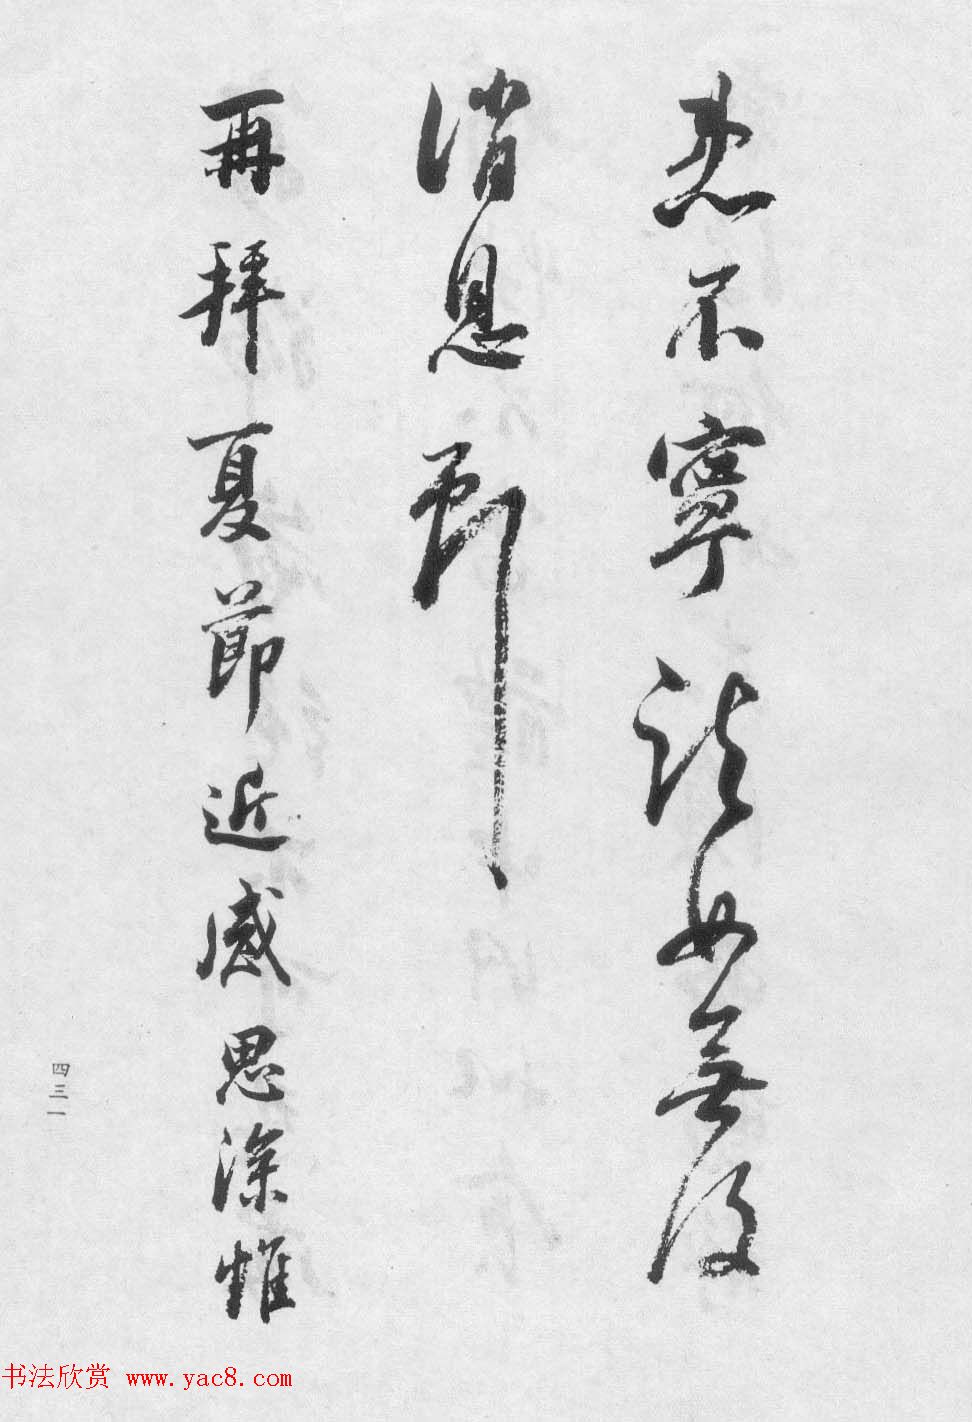 患不寧女無復
消息
再拜夏節近感思深惟
四三一
书法欣赏 www.yac8.com